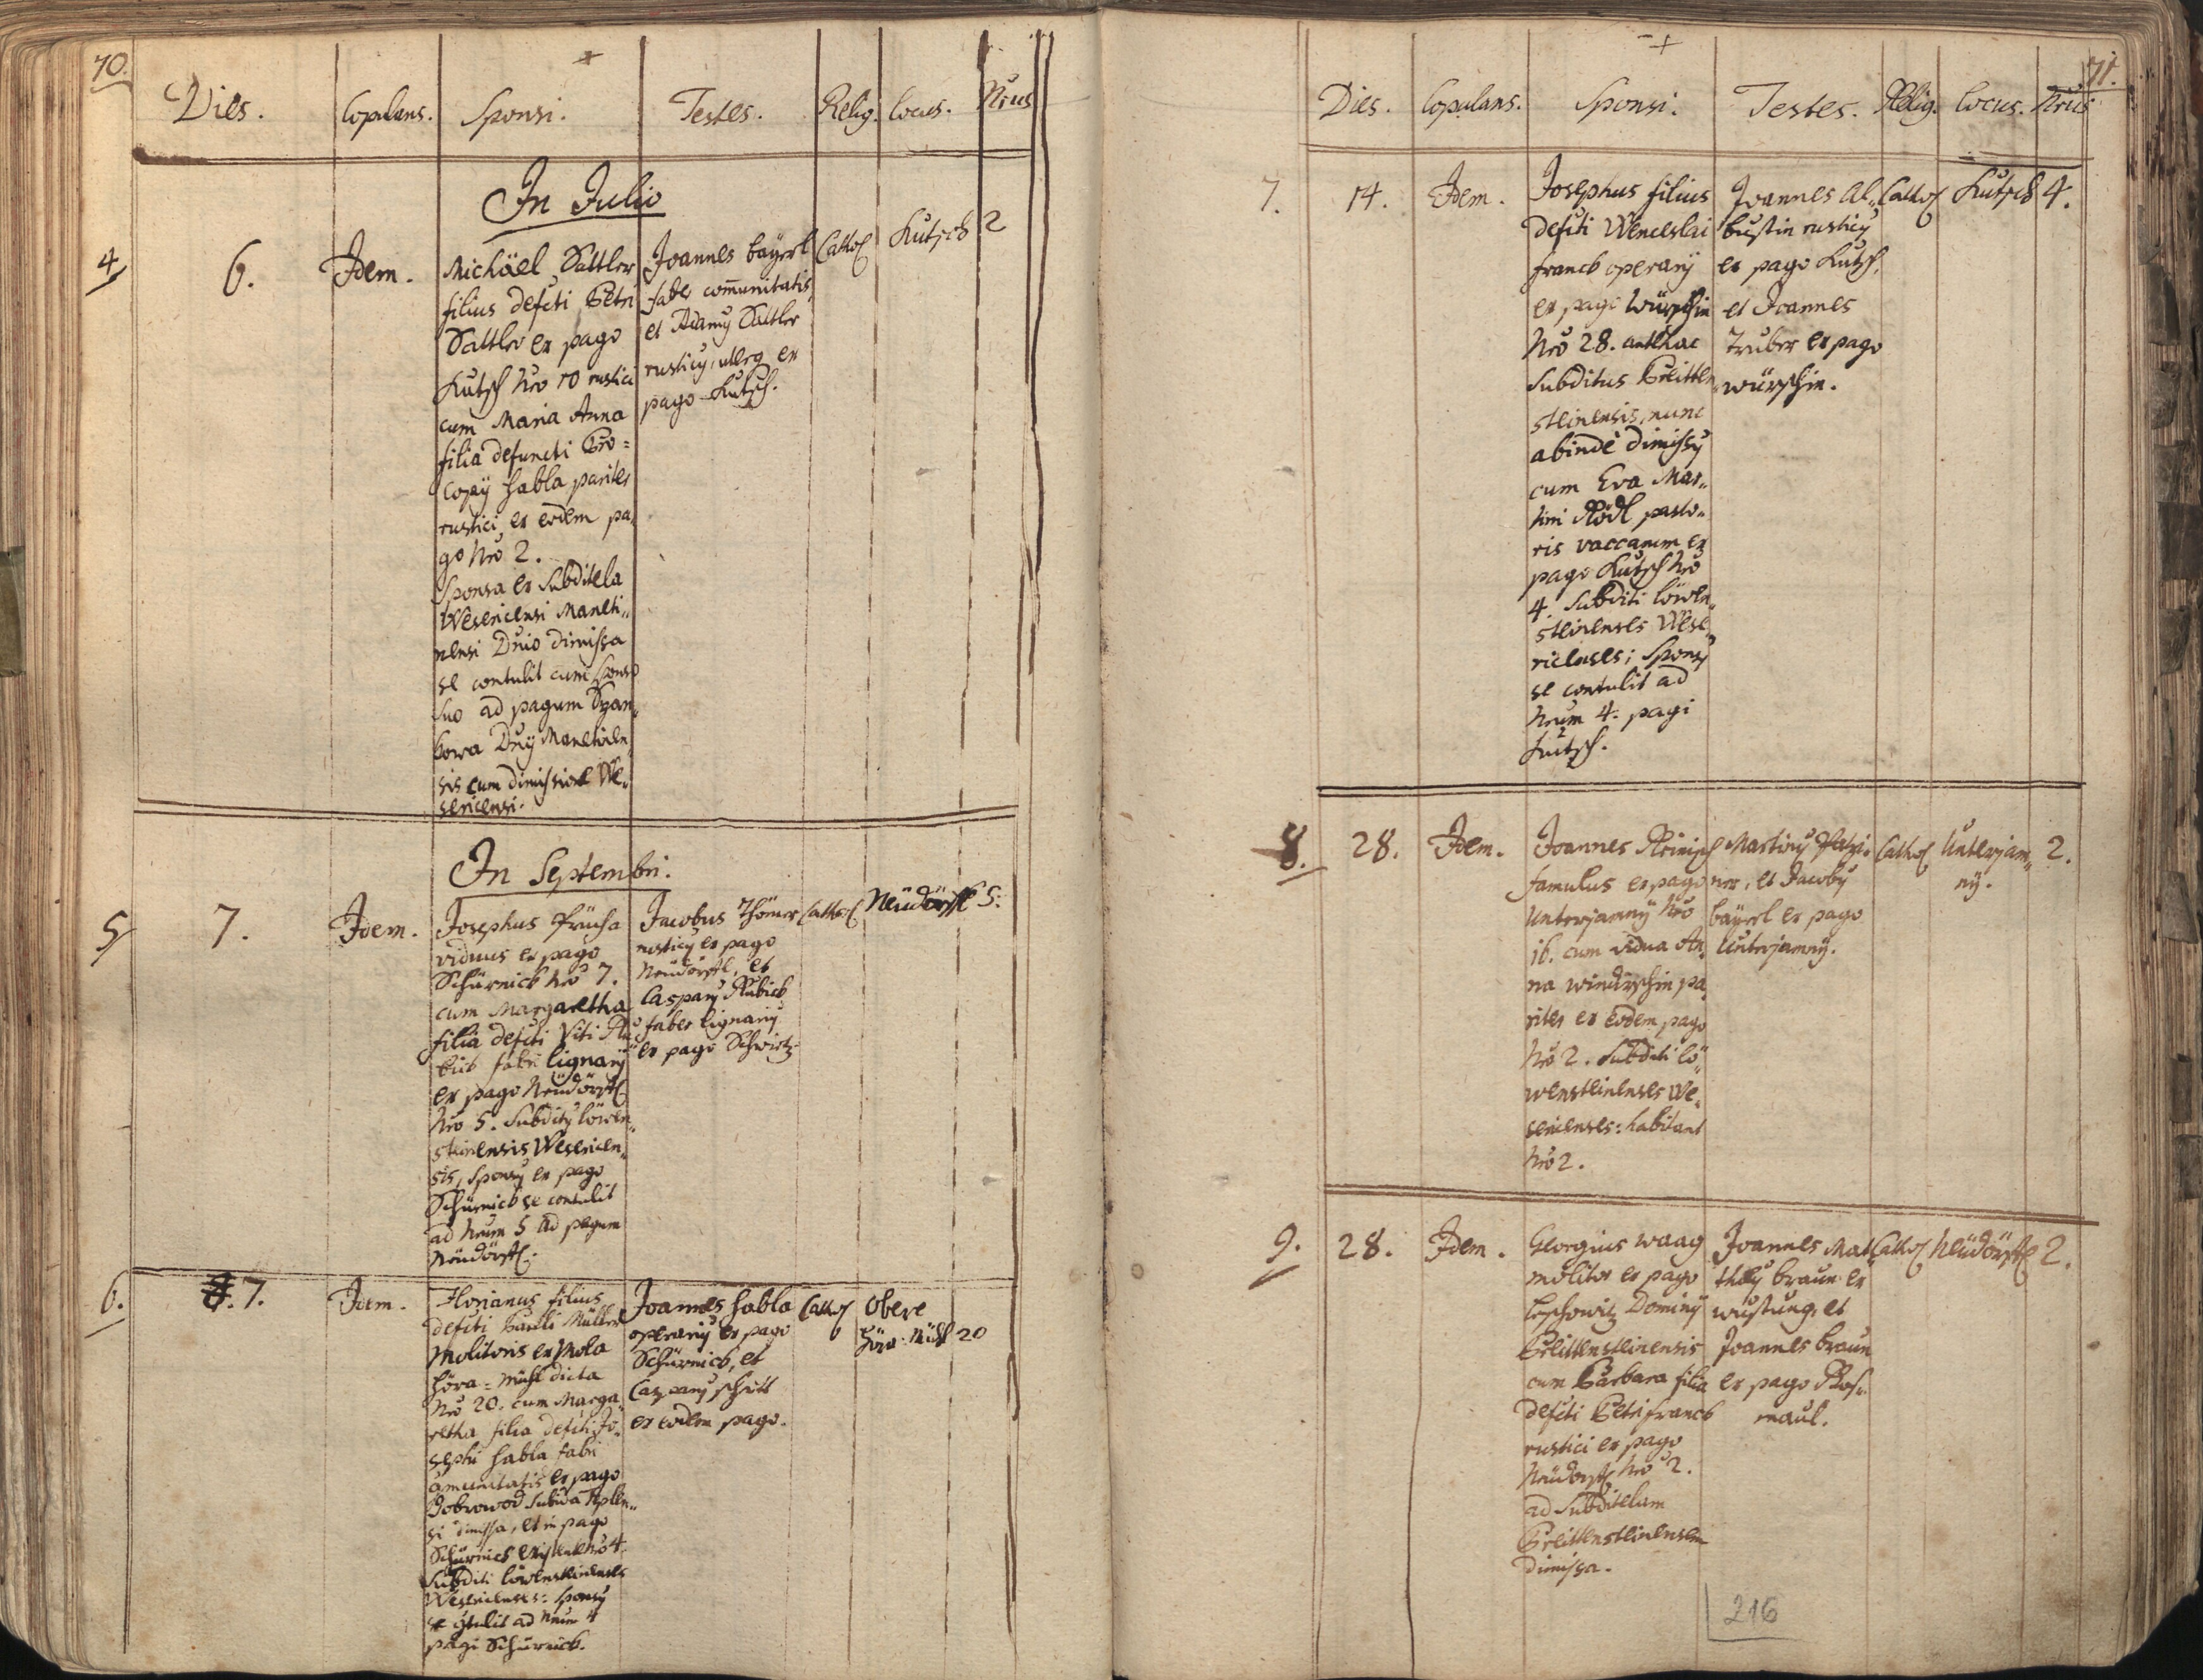 70.
Dies. Copulans. Sponsi. Testes. Relig. Locus. Nrus
In Julio
4 6. Idem.
Michäel Sattler
filius defcti Petri
Sattler ex pago
Kutsch Nro 10 rustici
cum Maria Anna
filia defuncti Pro=
copÿ Habla pariter
rustici ex eodem pa„
go Nro 2.
Sponsa ex Subditela
Wesericensi Maneti„
nensi Dnio dimissa
se contulit cum sponso
suo ad pagum
Dnÿ Manetinen„
sis cum dimissione We„
sericensi.
Joannes baÿerl
faber communitatis,
et Adamus Sattler
rusticus, uterq ex
pago Kutsch.
Cathol Kutsch 2
In Septembri.
5 7. Idem.
Josephus Prucha
viduus ex pago
Schürnick Nro 7.
cum Margaretha
filia defcti Viti Ru„
bick fabri lignarÿ
ex pago Neudörfl
Nro 5. Subditus löwen„
steinensis Wesericen„
sis, Sponsus ex pago
Schürnick se contulit
ad Nrum 5 ad pagum
Neudörfl.
Jacobus Thömer
rusticus ex pago
Neudörfl, et
Casparus Rubick
faber lignarius
ex pago Schwirtz.
Cathol Neudörfl 5.
6. 7. Idem.
Florianus filius
defcti Pauli Müller
Molitoris ex Mola
Höra=Mühl dicta
Nro 20. cum Marga„
retha filia defcti Jo„
sephi Habla fabri
cõmunitatis ex pago
Dobrowod Subdita Teplen„
si dimissa, et in pago
Schürnick existente Nro 4.
Subditi löwensteinenses
Wesericenses: sponsus
se contulit ad Nrum 4
pagi Schürnick.
Joannes Habla
operarius ex pago
Schürnick, et
Casparus schutt
ex eodem pago.
Cathol Obere
Höra=Mühl 20
71.
Dies. Copulans. Sponsi. Testes. Relig. Locus. Nrus
7. 14. Idem.
Josephus filius
defcti Wenceslai
franck operarÿ
ex pago Würschin
Nro 28. antehac
Subditus Preitten„
steinensis, nunc
abinde dimissus
cum Eva Mar„
tini Rödl pasto„
ris vaccarum ex
pago Kutsch Nro
4. Subditi löwen„
steinenses Wese„
ricenses; Sponsus
se contulit ad
Nrum 4. pagi
Kutsch.
Joannes Al„
bustin rusticus
ex pago Kutsch,
et Joannes
Truber ex pago
würschin.
Cathol Kutsch 4.
8. 28. Idem.
Joannes Reinisch
famulus ex pago
Unterjamnÿ Nro
16. cum vidua An„
na windirschin pa„
riter ex eodem pago
Nro 2. Subditi lö„
wensteinenses We„
sericenses: habitant
Nro 2.
Martinus
ner, et Jacobus
baÿerl ex pago
Unterjamnÿ.
Cathol Unterjam„
nÿ. 2.
9. 28. Idem.
Georgius waag
molitor ex pago
leschowitz Dominÿ
Preittensteinensis
cum Barbara filia
defcti Petri franck
rustici ex pago
Neudorfl Nro 2.
ad Subditelam
Preittensteinensem
dimissa.
Joannes Mat„
theus braun ex
wustung, et
Joannes braun
ex pago Ros„
maul.
Cathol Neudörfl 2.
216